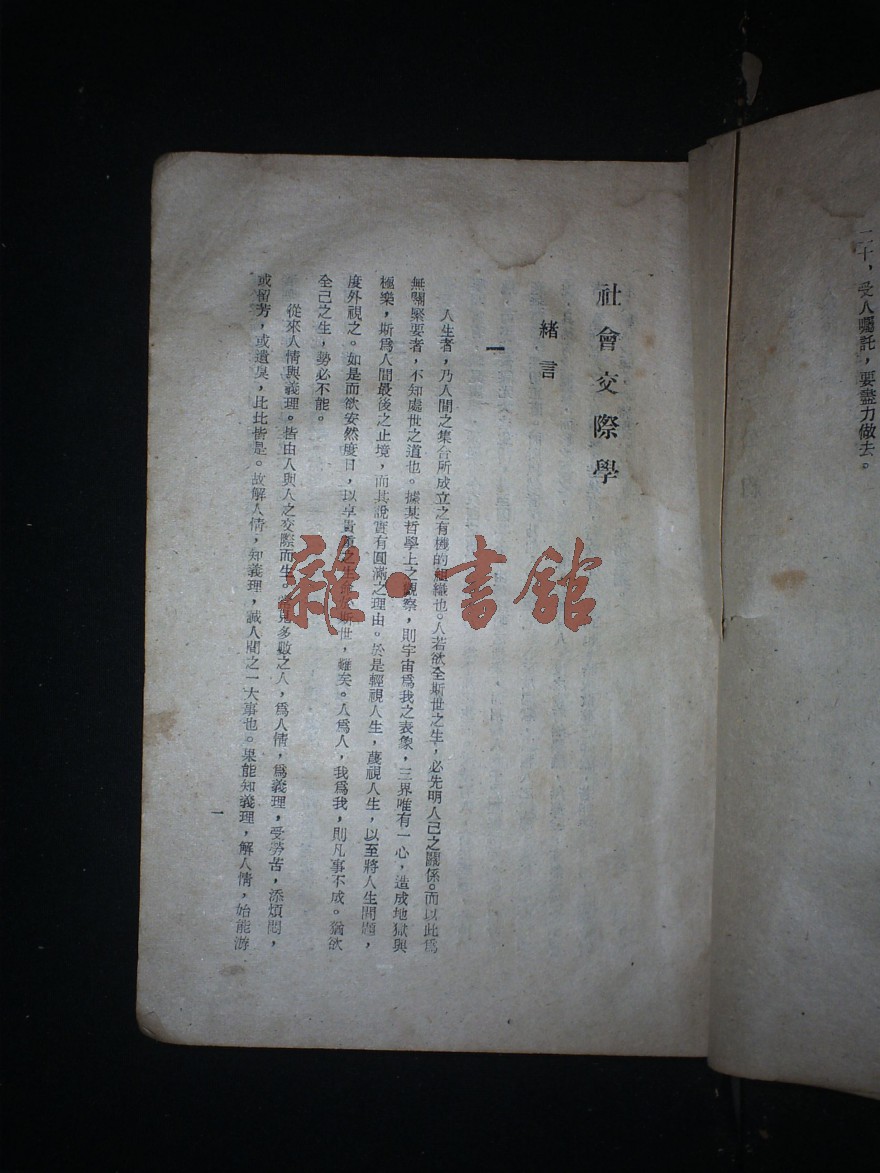 二十，受人囑託，要盡力做去。
社會交際學
緒言
一
人生者，乃人間之集合所成立之有機的組織也。人若欲全斯世之生，必先明人己之關係。而以此爲
無關緊要者，不知處世之道也。據某哲學上之觀察，則宇宙爲我之表象，三界唯有一心，造成地獄與
極樂，斯爲人間最後之止境，而其說實有圓滿之理由。於是輕視人生，蔑視人生，以至將人生問題，
度外視之。如是而欲安然度日，以享貴重之生於斯世，難矣。人爲人，我爲我，則凡事不成。猶欲
全己之生，勢必不能。
從來人情與義理。皆由人與人之交際而生。常見多數之人，爲人情，爲義理，受勞苦，添煩悶，
或留芳，或遺臭，比比皆是。故解人情，知義理，誠人間之一大事也。果能知義理，解人情，始能游
一
雜·書館